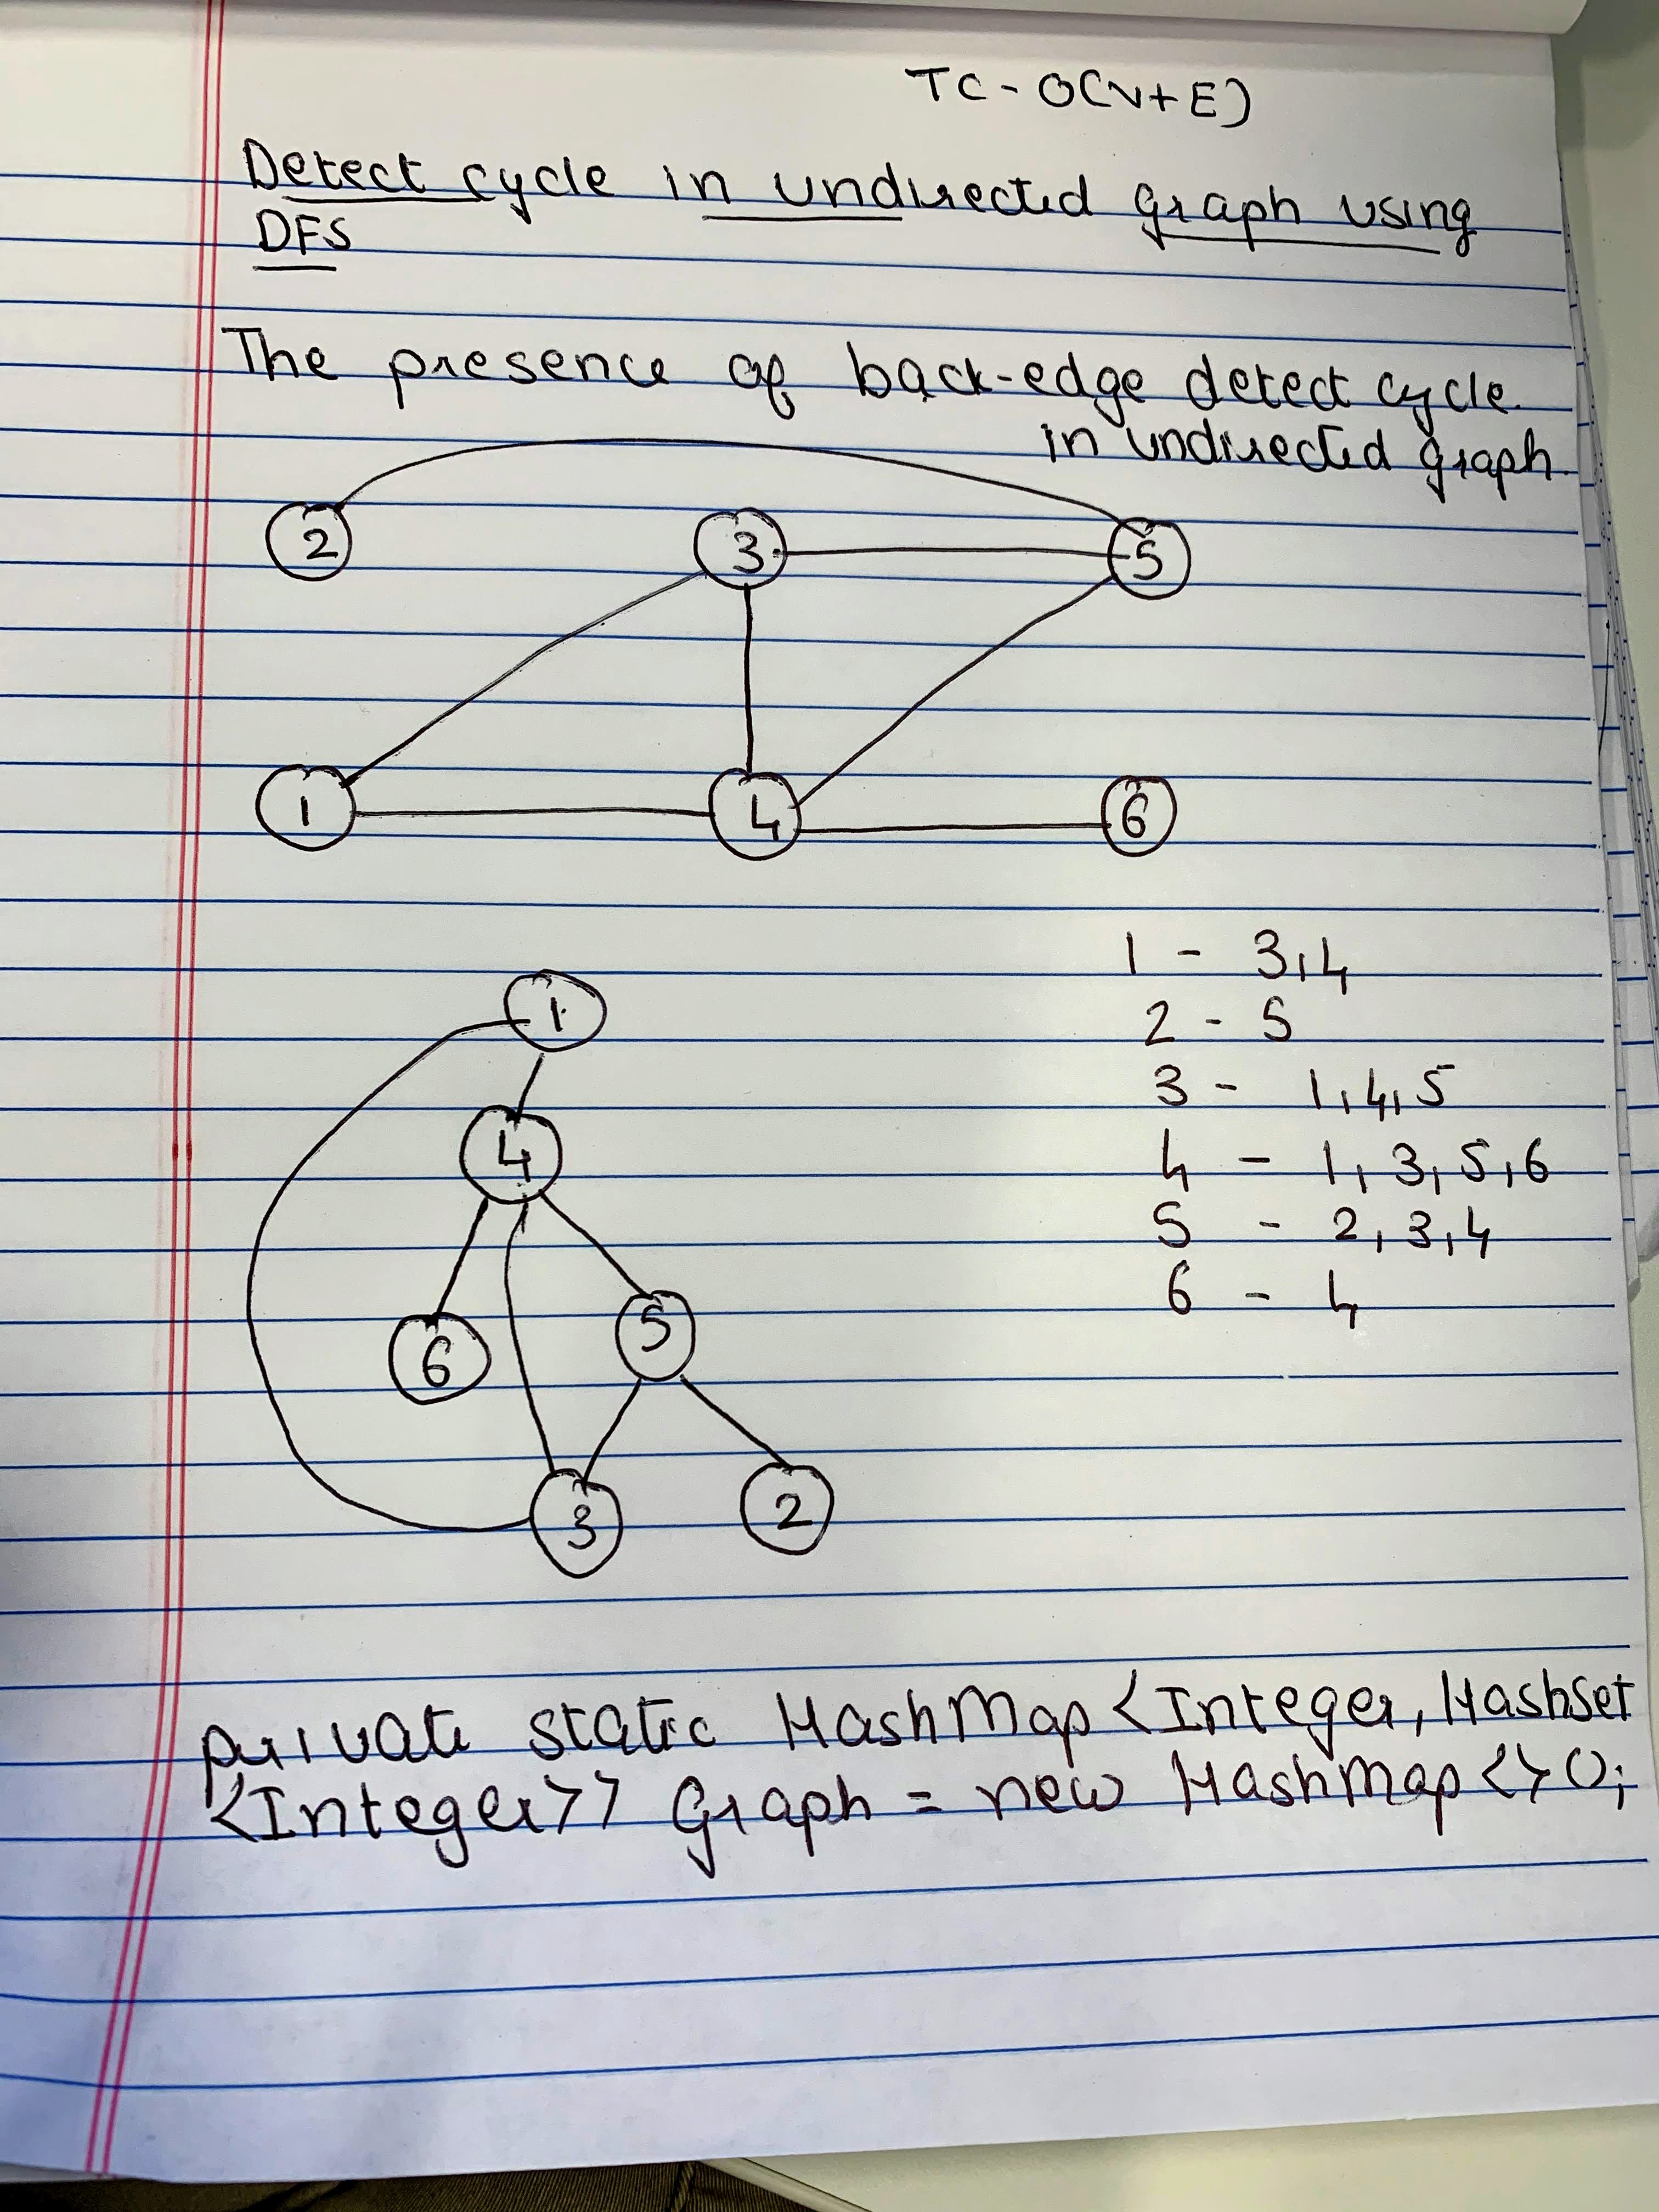 TC - O(V+E)
Detect cycle in undirected graph using
DFS
The presence of back-edge detect cycle.
in undirected graph.
2 3 5
1 4 6
1 - 3,4
2 - 5
3 - 1,4,5
4 - 1,3,5,6
5 - 2,3,4
6 - 4
1
4
6 5
3 2
private static HashMap<Integer, HashSet
<Integer>> Graph = new HashMap<>();